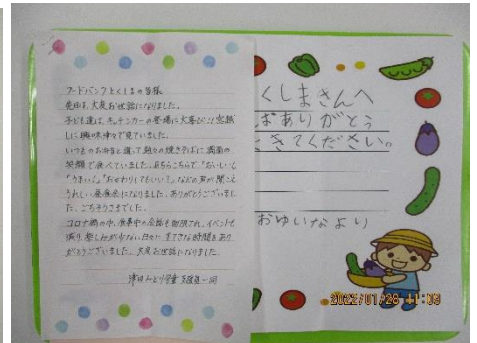 フードバンクとくしまの皆様
先日は、大変お世話になりました。
子ども達は、キッチンカーの登場に大喜び!! 窓越
しに興味津々で見ていました。
いつものお弁当と違って熱々の焼きそばに満面の
笑顔で食べていました。あちらこちらで"おいしい"
"うまい""おかわりしてもいい?"などの声が聞こえ
うれしい昼食会になりました。ありがとうございまし
た。ごちそうさまでした。
コロナ禍の中、食事中の会話も制限され、イベントも
減り、楽しみが少ない日々に、すてきな時間をあり
がとうございました。大変お世話になりました。
津田みどり学童 支援員一同
くしまさんへ
ばありがとう
きてください。
おゆいなより
2022/01/28 11:03